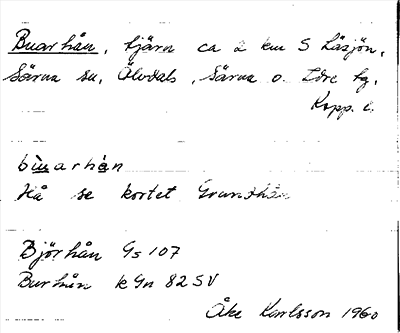 Buarhån, tjärn ca 2 km S Läsjön,
Särna sn, Älvdals, Särna o. Idre tg,
Kopp. l.
bùarhån
Hå se kortet Grundhån
Björhån Gs 107
Burhån kGn 82 SV
Åke Karlsson 1960